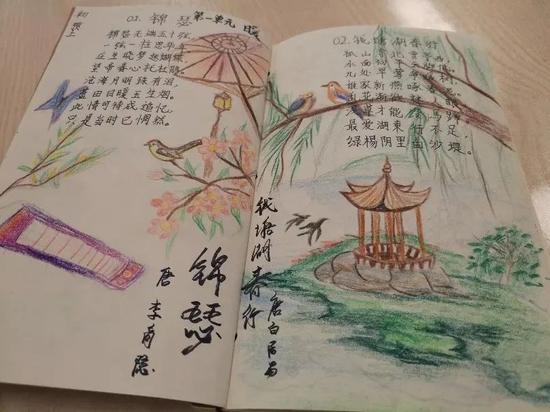 01. 锦 瑟 第一单元
锦瑟无端五十弦,
一弦一柱思华年。
庄生晓梦迷蝴蝶,
望帝春心托杜鹃。
沧海月明珠有泪,
蓝田日暖玉生烟。
此情可待成追忆,
只是当时已惘然。
锦瑟
唐 李商隐
02. 钱塘湖春行
孤山寺北贾亭西,
水面初平云脚低。
几处早莺争暖树,
谁家新燕啄春泥。
乱花渐欲迷人眼,
浅草才能没马蹄。
最爱湖东行不足,
绿杨阴里白沙堤。
钱塘湖春行
唐 白居易